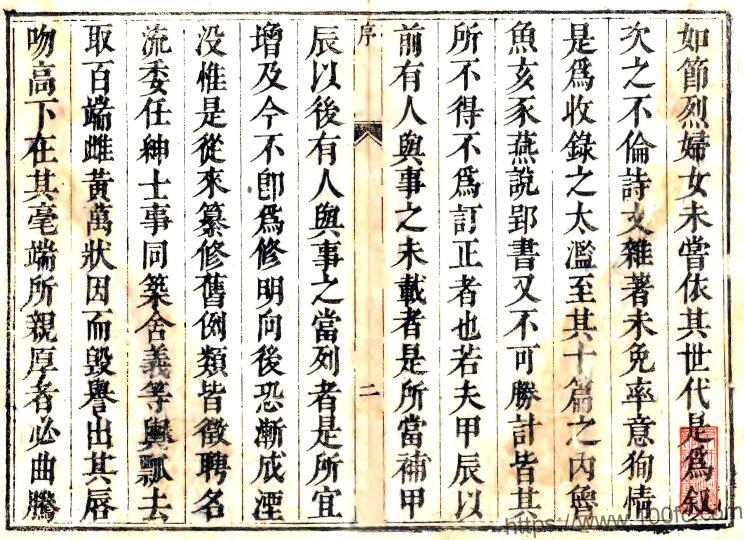 如節烈婦女未嘗依其世代是爲叙
次之不倫詩文雜著未免率意狥情
是爲收錄之太濫至其十篇之內魯
魚亥豕燕說郢書又不可勝計皆其
所不得不爲訂正者也若夫甲辰以
前有人與事之未載者是所當補甲
序
二
辰以後有人與事之當列者是所宜
增及今不卽爲修明向後恐漸成湮
没惟是從來纂修舊例類皆徵聘名
流委任紳士事同築舍義等輿瓢去
取百端雌黃萬狀因而毀譽出其唇
吻高下在其毫端所親厚者必曲騰